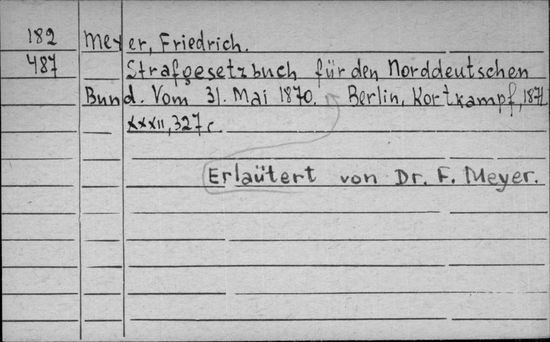 182 Meyer, Friedrich.
487 Strafgesetzbuch für den Norddeutschen
Bund. Vom 31. Mai 1870. Berlin, Kortkampf, 1871.
XXXII, 327 c.
Erlaütert von Dr. F. Meyer.